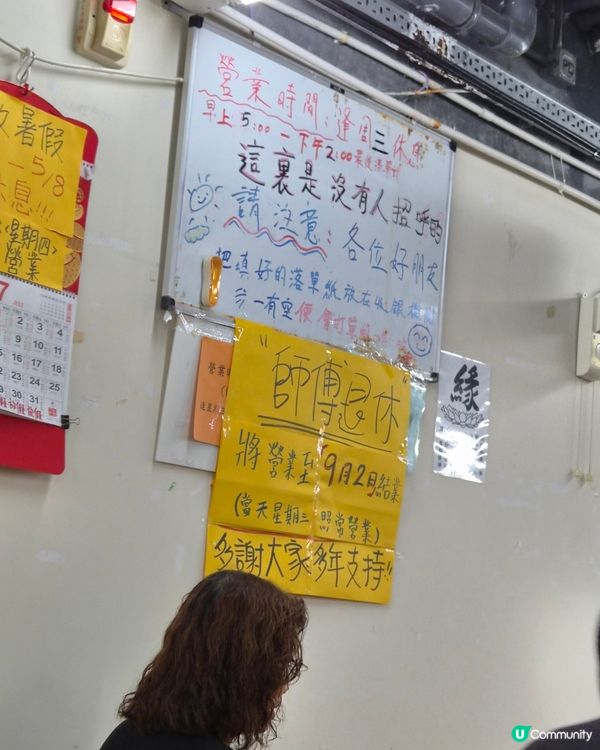 放暑假
—5/8
休息!!!
(星期四)
營業
7
營業時間：逢周三休息
早上5:00 — 下午2:00 最後落單時
這裏是沒有人招呼的
請注意：各位好朋友
把填好的落單紙放在收銀機
一有空便會打單的
營業
"師傅退休"
將營業至9月2日結業
(當天星期三照常營業)
多謝大家多年支持!!
緣
U Community